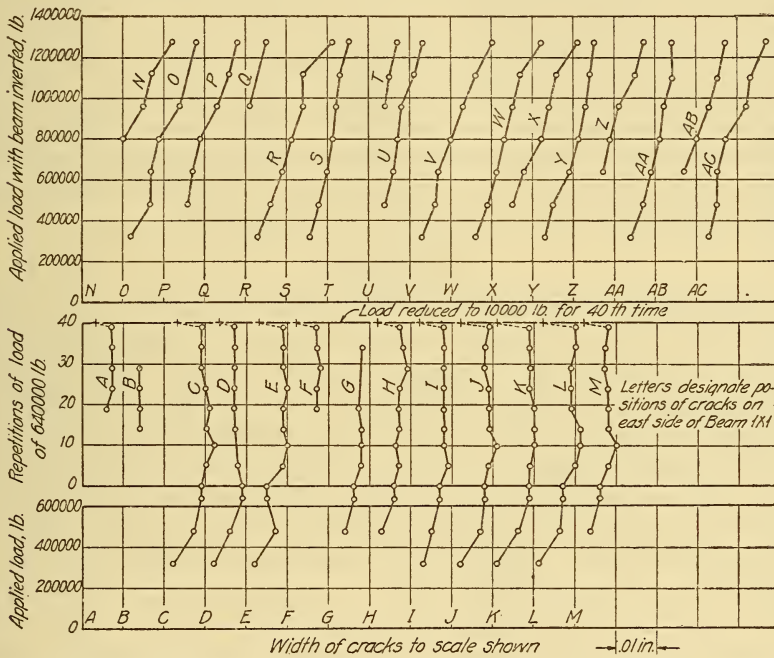 Applied load with beam inverted, lb.
1400000
1200000
1000000
800000
600000
400000
200000
0
N O P Q R S T U V W X Y Z AA AB AC
N O P Q R S T U V W X Y Z AA AB AC .
Load reduced to 10000 lb. for 40th time
Repetitions of load
of 640000 lb.
40
30
20
10
0
A B C D E F G H I J K L M
Letters designate po-
sitions of cracks on
east side of Beam 1X1
Applied load, lb.
600000
400000
200000
0
A B C D E F G H I J K L M
Width of cracks to scale shown
.01 in.